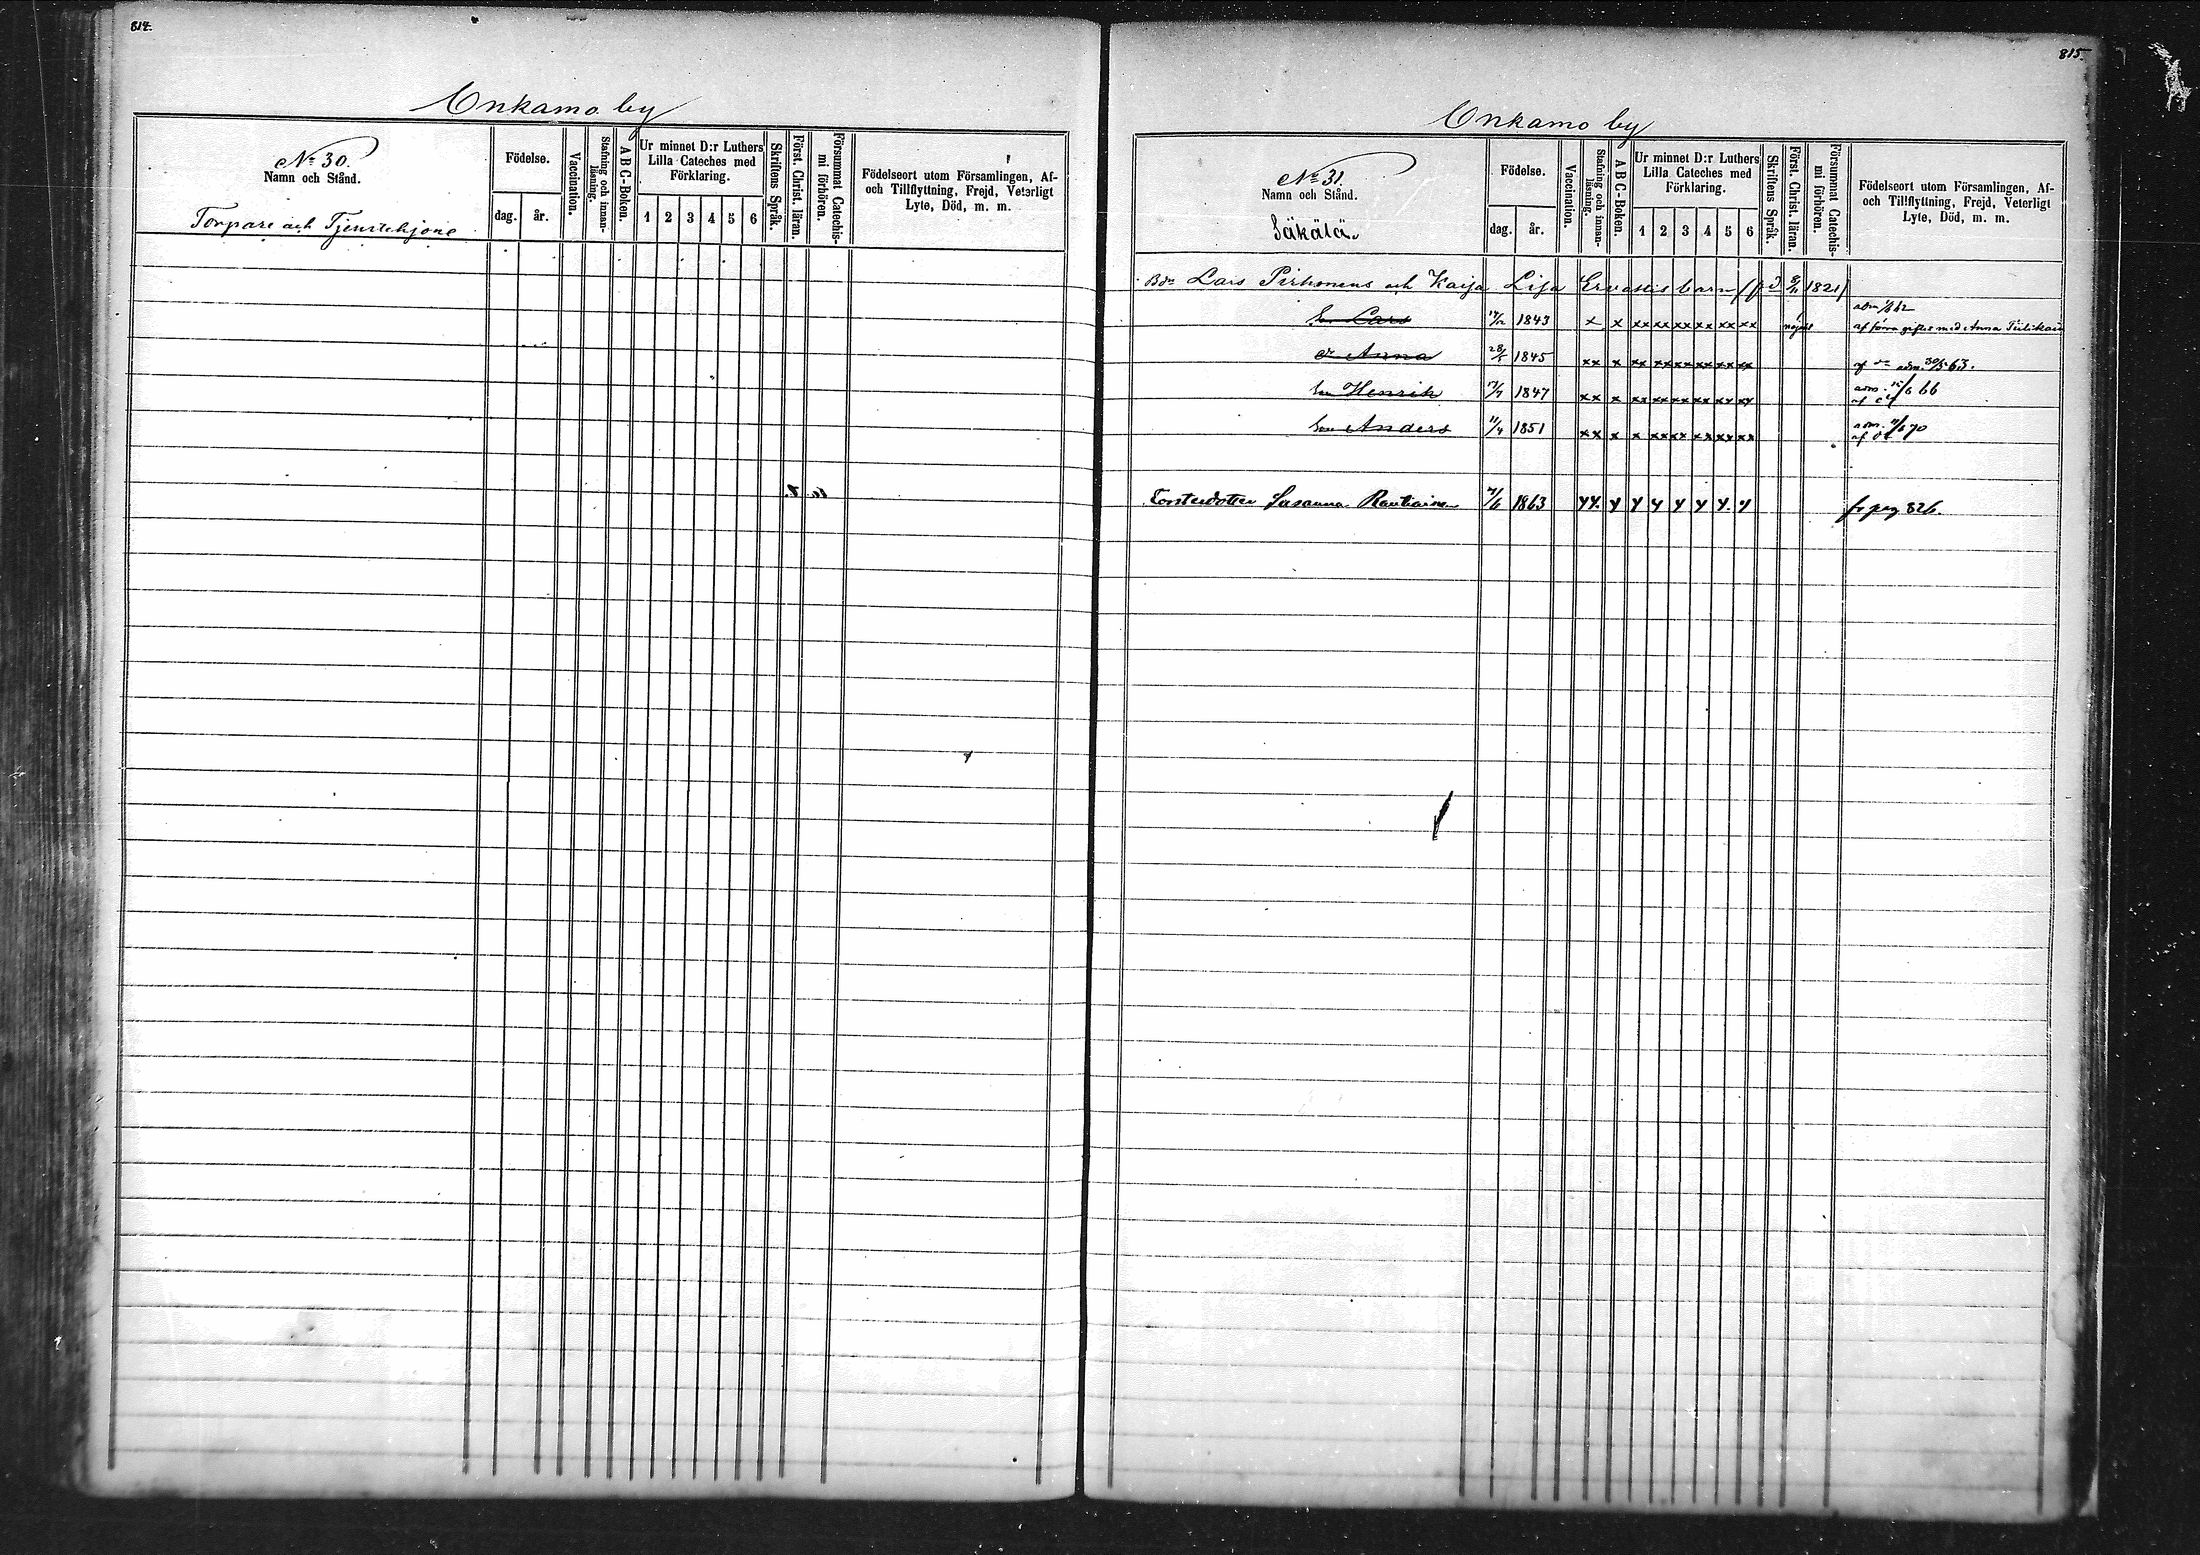 814.
Onkamo by
No 30.
Namn och Stånd.
Torpare och Tjenstehjone
Födelse.
dag. år.
Vaccination.
Stafning och innan-
läsning.
A B C-Boken.
Ur minnet D:r Luthers
Lilla Cateches med
Förklaring.
1 2 3 4 5 6
Skriftens Språk.
Först. Christ. läran.
Försummat Catechis-
mi förhören.
Födelseort utom Församlingen, Af-
och Tillflyttning, Frejd, Veterligt
Lyte, Död, m. m.
815.
Onkamo by
No 31.
Namn och Stånd.
Säkälä.
Födelse.
dag. år.
Vaccination.
Stafning och innan-
läsning.
A B C-Boken.
Ur minnet D:r Luthers
Lilla Cateches med
Förklaring.
1 2 3 4 5 6
Skriftens Språk.
Först. Christ. läran.
Försummat Catechis-
mi förhören.
Födelseort utom Församlingen, Af-
och Tillflyttning, Frejd, Veterligt
Lyte, Död, m. m.
Lars Pirhonens och Kaija Lisa barn 1821
Son Lars 1843 x x xx xx xx xx xx xx af förra giftet med Anna
dr Anna 28/5 1845 xx x xx xx xx xx xx xx af do adm. 30/5 63.
Son Henrik 1847 xx x xx xx xx xx xx xx adm. 66
Son Anders 11/4 1851 xx x x xx xx xx xx xx adm. 70
Susanna Rautiainen 1863 yy. y y y y y y. y fr pag 826.